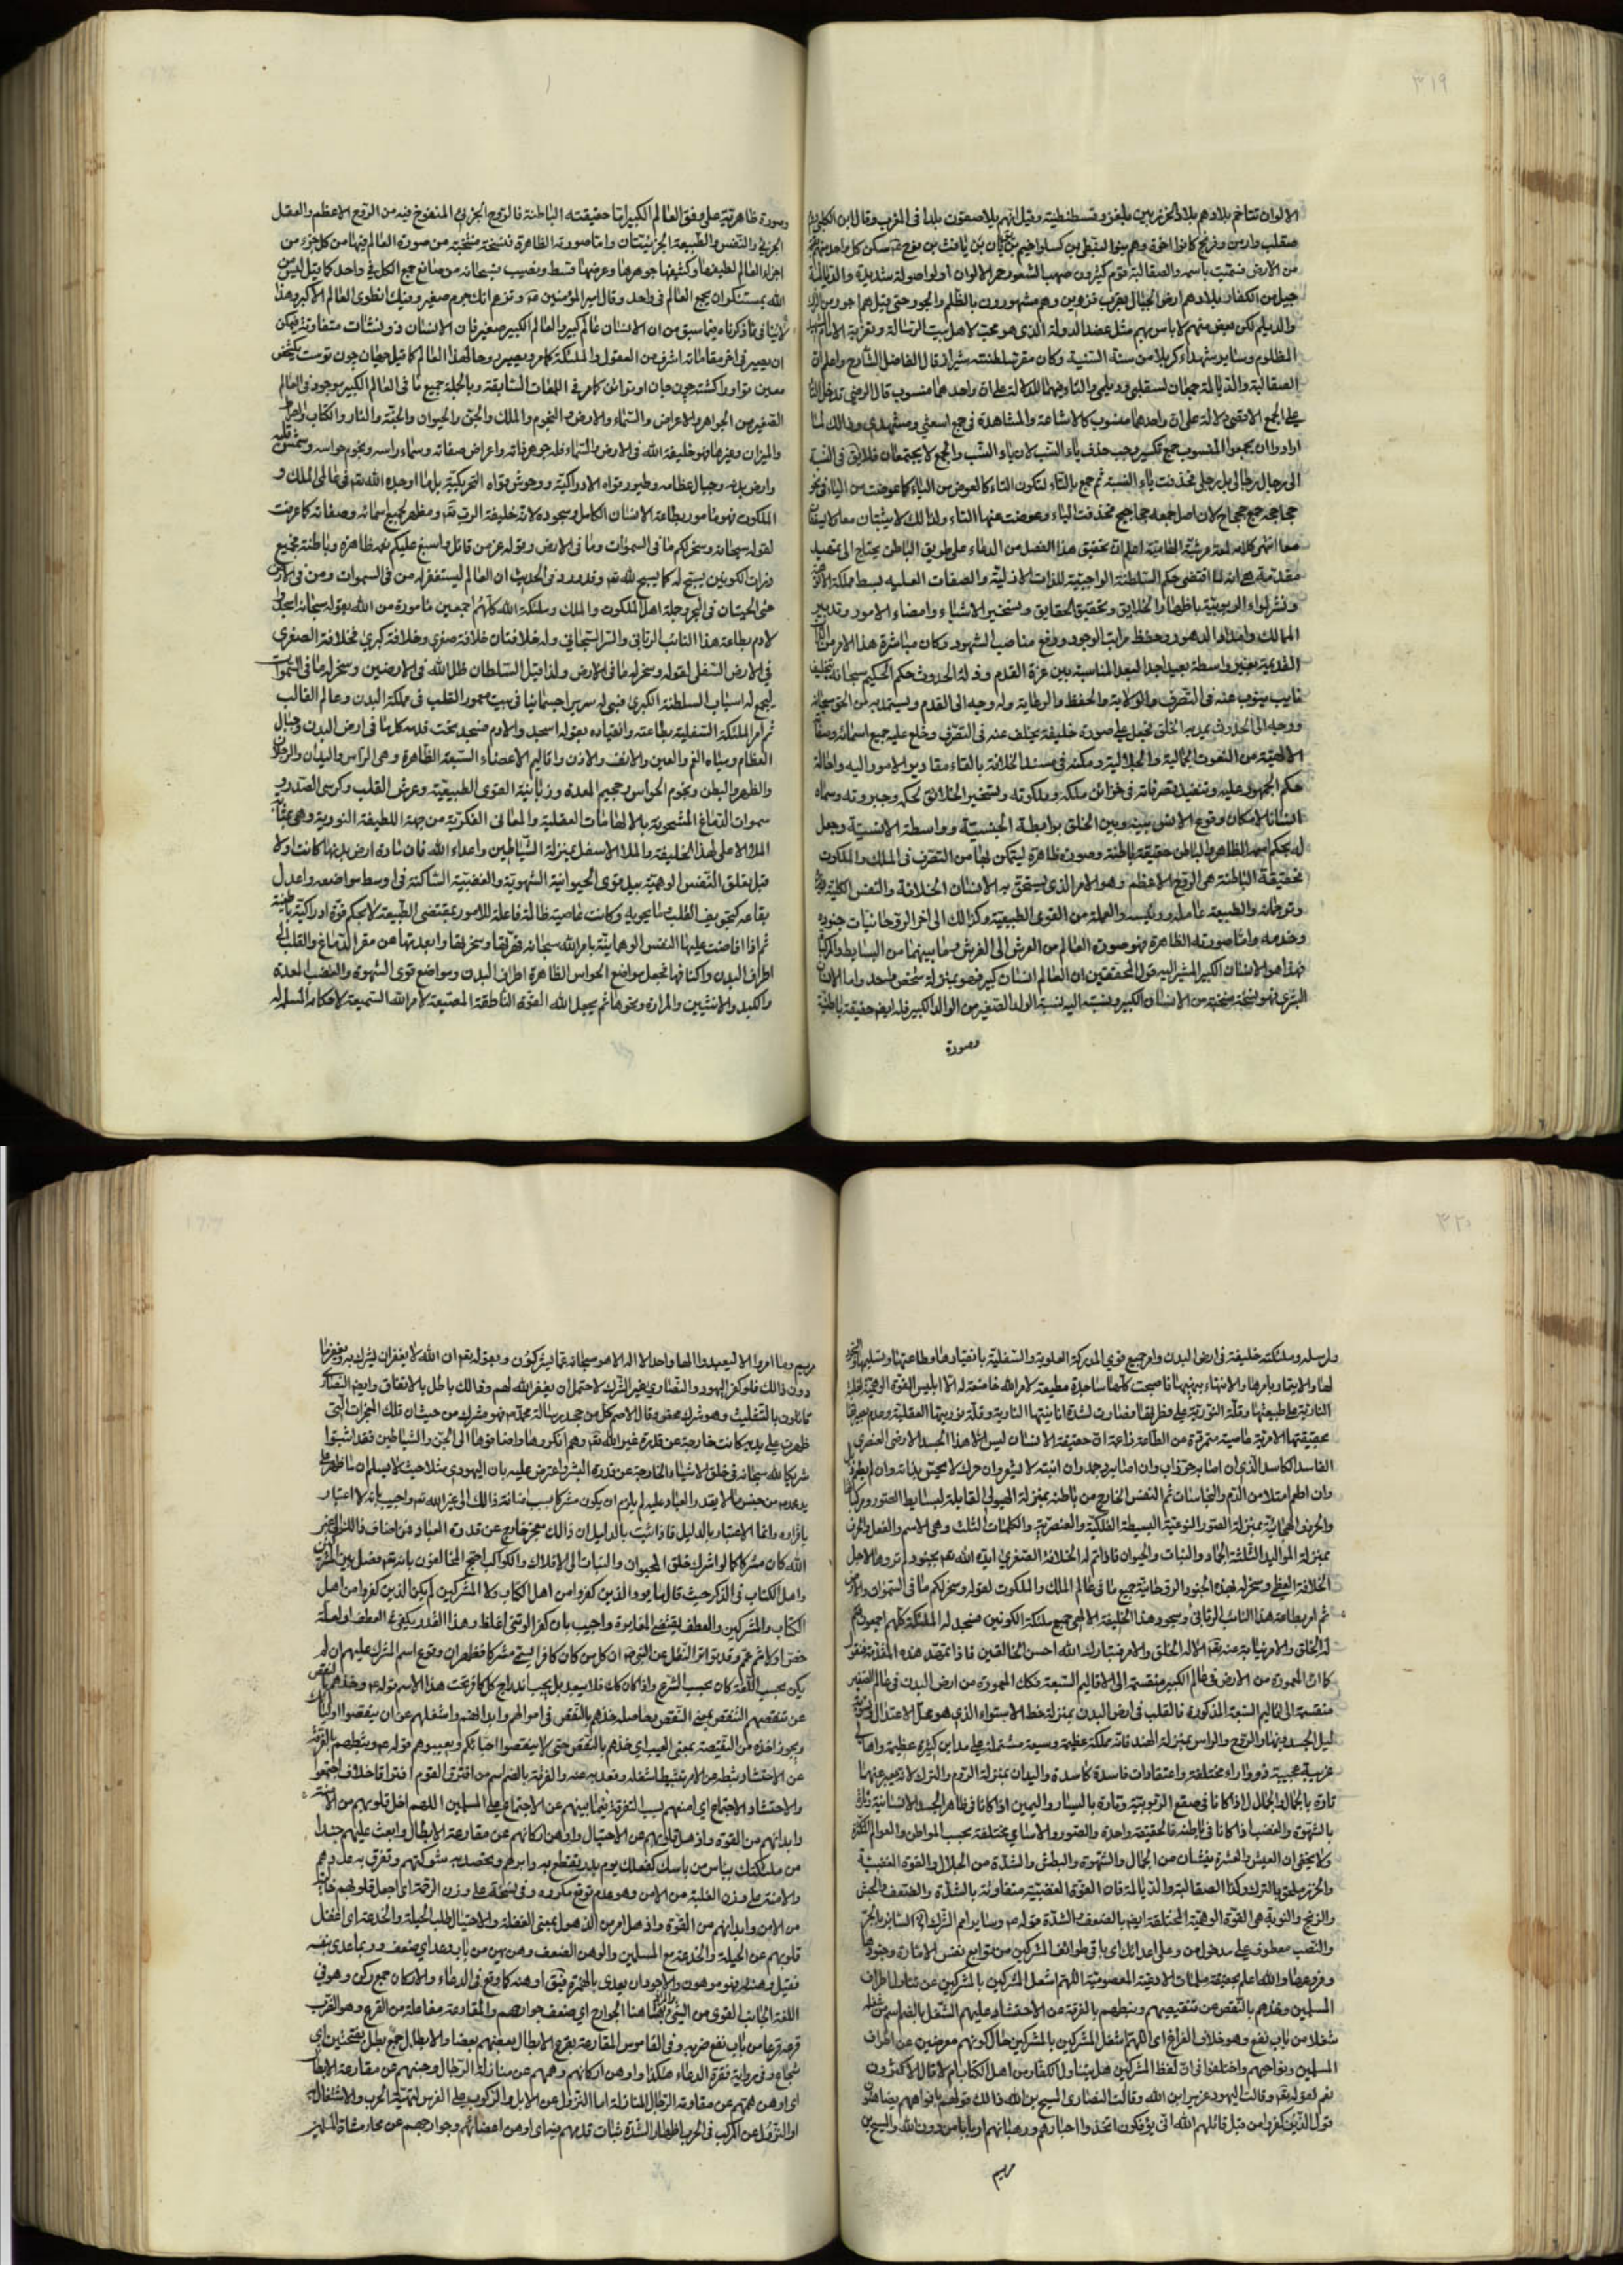 ٣١٩
الالوان تتاخم بلادهم بلاد الخزر بين بلغر وقسطنطينية وقيل انهم بلا صعقون بلدا فى المغرب وقال ابن الكلبى
من الارض فسميت باسمه والصقالبة قوم كثيرون صهب الشعور حمر الالوان اولوا صولة شديدة والديالمة
جيل من الكفار بلادهم ارض الجبال بقرب قزوين وهم مشهورون بالظلم والجور حتى قيل هما جور من
والديلم لكن بعض منهم لا باس بهم مثل عضد الدولة الذى هو محب لاهل بيت الرسالة وتعزية الامام
المظلوم وساير شهداء كربلا من سنة السنية وكان مقر سلطنته شيراز قال الفاضل الشارح واعلم ان
الصقالبة والديالمة جمعان لسقلبى وديلمى والتاء فيهما للدلالة على ان واحدهما منسوب قال الرضى تدخل التا
على الجمع الاقصى دلالة على ان واحدها منسوب كالاشاعثة والمشاهدة فى جمع اشعثى ومشهدى وذالك لما
ارادوا ان يجمعوا المنسوب جمع تكسير وجب حذف ياء النسب لان ياء النسب والجمع لا يجتمعان فلا يق فى النسبة
الى رجال رجالى بل رجلى فحذفت ياء النسبة ثم جمع بالتاء لتكون التاء كالعوض من الياء كما عوضت من الياء فى نحو
حجاجحة جمع جحجاح لان اصل جمعه جحاجيح فحذفت الياء وعوضت عنها التاء ولذالك لا يثبتان معا ولا يسقطان
معا انتهى كلامه لمعة عرشية الهامية اعلم ان تحقيق هذا الفصل من الدعاء على طريق الباطن يحتاج الى تمهيد
مقدمة هى انه لما اقتضى حكم السلطنة الواجبية للذات الازلية والصفات العلية بسط مملكة الالوهية
ونشر لواء الربوبية باظهار الخلايق وتحقيق الحقايق وتسخير الاشياء وامضاء الامور وتدبير
الممالك وامداد الدهور وحفظ مراتب الوجود ورفع مناصب الشهود وكان مباشرة هذا الامر من الذات
القديمة بغير واسطة بعيدا جدا لبعد المناسبة بين عزة القدم وذلة الحدوث حكم الحكيم سبحانه بتخليف
نايب ينوب عنه فى التصرف والولاية والحفظ والرعاية وله وجه الى القدم ويستمد به من الحق سبحانه
ووجه الى الحدوث يمد به الخلق فجعل على صورة خليفة يخلف عنه فى التصرف وخلع عليه جميع اسمائه وصفاته
الالهية من النعوت الجمالية والجلالية ومكنه فى مسند الخلافة بالقاء مقادير الامور اليه واحالة
حكم الجمهور عليه وتنفيذ تصرفاته فى خزائن ملكه وملكوته وتسخير الخلائق لحكمه وجبروته وسماه
انسانا لامكان وقوع الانس بينه وبين الخلق برابطة الجنسية وواسطة الانسية وجعل
له بحكم اسمه الظاهر والباطن حقيقة باطنة وصورة ظاهرة ليتمكن بهما من التصرف فى الملك والملكوت
فحقيقة الباطنة هى الروح الاعظم وهو الامر الذى يستحق به الانسان الخلافة والنفس الكلية
وترجمانه والطبيعة عاملة ورئيسه والعملة من القوى الطبيعية وكذالك الى اخر الروحانيات جنوده
وخدمه واما صورته الظاهرة فهو صورة العالم من العرش الى الفرش وما بينهما من البسايط والمركبات
فهذا هو الانسان الكبير المشير اليه قول المحققين ان العالم انسان كبير فهو بمنزلة شخص واحد واما الانسان
البشرى فهو نسخة منتخبة من الانسان الكبير ونسبته اليه نسبة الولد الصغير من الوالد الكبير فله ايضا حقيقة باطنة
وصورة
وصورة ظاهرية على وفق العالم الكبير اما حقيقته الباطنة فالروح الجزئى المنفوخ فيه من الروح الاعظم والعقل
الجزئى والنفس والطبيعة الجزئيتان واما صورته الظاهرة فنسخة منتخبة من صورة العالم فيها من كل جزء من
اجزاء العالم لطيفها وكثيفها جوهرها وعرضها قسط ونصيب فسبحانه من صانع جمع الكل فى واحد كما قيل ليس من
الله بمستنكر ان يجمع العالم فى واحد وقال امير المؤمنين وتزعم انك جرم صغير وفيك انطوى العالم الاكبر وهذا
لا ينافى ما ذكرناه فيما سبق من ان الانسان عالم كبير والعالم الكبير صغير فان الانسان ذو نشئات متفاوتة فيمكن
ان يصير فى اخر مقاماته اشرف من العقول والملئكة كامر
والميزان وغيرها فهو خليفة الله فى الارض والسماء فله جوهر ذاته واعراض صفاته وسماء راسه ونجوم حواسه وشمس قلبه
وارض بدنه وجبال عظامه وطيور قواه الادراكية ووحوش قواه التحريكية بل ما اوجده الله تعم فى عالمى الملك و
الملكوت فهو مامور بطاعة الانسان الكامل وسجوده لانه خليفة الرب تعم ومظهر لجميع اسمائه وصفاته كما عرفت
لقوله سبحانه وسخر لكم ما فى السموات وما فى الارض وبقوله عز من قائل واسبغ عليكم نعمه ظاهرة وباطنة فجميع
ذرات الكونين يسبح له كما يسبح لله تعم وقد ورد فى الحديث ان العالم ليستغفر له من فى السموات ومن فى الارض
حتى الحيتان فى البحر وجملة اهل الملكوت والملك وملئكة الله كلهم اجمعين مامورة من الله بقوله سبحانه اسجدوا
لادم بطاعة هذا النائب الربانى والسر السبحانى وله خلافتان خلافة صغرى وخلافة كبرى فخلافة الصغرى
فى الارض السفلى لقوله وسخر له ما فى الارض ولذا قيل السلطان ظل الله فى الارضين وسخر له ما فى السموات
ليجمع له اسباب السلطنة الكبرى فبنى له سرير جسمانيا فى بيت معمور القلب فى مملكة البدن وعالم القالب
ثم امر الملئكة السفلية بطاعته وانقياده بقوله اسجدوا لادم فسجد تحت قدمه كل ما فى ارض البدن وجبال
العظام ومياه الفم والعين والانف والاذن واقاليم الاعضاء السبعة الظاهرة وهى الراس واليدان والرجلان
والظهر والبطن ونجوم الحواس وجحيم المعدة وزبانية القوى الطبيعية وعرش القلب وكرسى الصدر و
سموات الدماغ المشحونة بالالهامات العقلية والمعانى الفكرية من جهة اللطيفة النورية وهى بمثابة
الملا الاعلى لهذا الخليفة والملا الاسفل بمنزلة الشياطين واعداء الله فان مادة ارض بدنها كانت اولا
قبل تعلق النفس الوهمية بيد قوى الحيوانية الشهوية والغضبية الساكنة فى اوسط مواضعه واعدل
بقاعه كتجويف القلب وما يحويه وكانت عاصية ظالمة فاعلة للامور بمقتضى الطبيعة لا بحكم قوة ادراكية باطنية
ثم اذا افاضت عليها النفس الوهمانية بامر الله سبحانه ففرقها وسخر لها وابعدتها عن مقر الدماغ والقلب الى
اطراف البدن واكنافها فجعل مواضع الحواس الظاهرة اطراف البدن ومواضع قوى الشهوة والغضب المعدة
والكبد والانثيين والمرارة ونحوها ثم يجعل الله القوة الناطقة المطيعة لامر الله السميعة لاحكام المسلم له
٣٢٠
ورسله وملئكته خليفة فى ارض البدن وامر جميع قوى المدركة العلوية والسفلية بانقيادها وطاعتها وتسليمها
لها والايتمار بامرها والانتهاء بنهيها فاصبحت كلها ساجدة مطيعة لامر الله خاضعة له الا ابليس القوة الوهمية لغلبة
النارية على طبيعتها وقلة النورية على
بحقيقتها الامرية عاصية متمردة من الطاعة زاعمة ان حقيقة الانسان ليس الا هذا الجسد الارضى العنصرى
وان اطعم امتلا من الدم والنجاسات ثم النفس الخارج من باطنه بمنزلة الهيولى القابلة لبسايط الصور ومركباتها
والحروف الهجائية بمنزلة الصور النوعية البسيطة الفلكية والعنصرية والكلمات الثلث وهى الاسم والفعل والحرف
بمنزلة المواليد الثلثة الجماد والنبات والحيوان فاذا تم له الخلافة الصغرى ايده الله تعم بجنود لم تروها لاجل
الخلافة العظمى وسخر له بهذه الجنود الروحانية جميع ما فى عالم الملك والملكوت لقوله وسخر لكم ما فى السموات والارض
ثم امر بطاعة هذا النائب الربانى وسجود هذا الخليفة الالهى جميع ملئكة الكونين فسجد له الملئكة كلهم اجمعون ثم
له الخلق والامر نيابة عنه تعم الا له الخلق والامر فتبارك الله احسن الخالقين فاذا تمهد هذه المقدمة فنقول
كما ان المعمورة من الارض فى عالم الكبير منقسمة الى الاقاليم السبعة فكك المعمورة من ارض البدن فى عالم الصغير
منقسمة الى اقاليم السبعة المذكورة فالقلب فى ارض البدن بمنزلة خط الاستواء الذى هو محل الاعتدال
ليل الجسد ونهار الروح والراس بمنزلة الهند فانه مملكة عظيمة وسيعة مشتملة على مداين كثيرة عظيمة واهالى
غريبة عجيبة ذووا اراء مختلفة واعتقادات فاسدة كاسدة واليدان بمنزلة الروم والترك لا تعبير عنهما
تارة بالجمال والجلال اذا كانا فى صقع الربوبية وتارة باليسار واليمين اذا كانا فى ظاهر الجسد الانسانية وتارة
بالشهوة والغضب اذا كانا فى باطنه فالحقيقة واحدة والصور والاسامى مختلفة بحسب المواطن والعوالم
ولا يخفى ان العيش والعشرة ينشان من الجمال والشهوة والبطش والشدة من الجلال والقوة الغضبية
والخزر ملحق بالترك وكذا الصقالبة والديالمة فان القوى الغضبية متفاوتة بالشدة والضعف والحبش
والزنج والنوبة هى القوة الوهمية المختلفة ايضا بالضعف والشدة قوله عم وساير امم الشرك اى الساير بالجر
والنصب معطوف على مدخول من وعلى اعدائك اى باقى طوائف المشركين من توابع نفس الامارة وجنودها
وفروعها والله اعلم بحقيقة ملمات الادعية المعصومية اللهم اشغل المشركين بالمشركين عن تناول اطراف
المسلمين وخذهم بالنقص عن تنقيصهم وثبطهم بالفرقة عن الاحتشاد عليهم الشغل بالضم اسم من شغله
شغلا من باب نفع وهو خلاف الفراغ اى اللهم اشغل المشركين بالمشركين حال كونهم معرضين عن اطراف
المسلمين ونواحيهم واختلفوا فى ان لفظ المشركين هل يتناول الكفار من اهل الكتاب ام لا قال الاكثرون
نعم لقوله تعم وقالت اليهود عزير ابن الله وقالت النصارى المسيح بن الله ذالك قولهم بافواههم يضاهئون
قول الذين كفروا من قبل قاتلهم الله انى يؤفكون اتخذوا احبارهم ورهبانهم اربابا من دون الله والمسيح بن
مريم
مريم وما امروا الا ليعبدوا الها واحدا لا اله الا هو سبحانه عما يشركون وبقوله تعم ان الله لا يغفر ان يشرك به ويغفر ما
دون ذالك فلو كفر اليهود والنصارى بغير الشرك لاحتمل ان يغفر الله لهم وذالك باطل بالاتفاق وايضا النصارى
قائلون بالتثليث وهو شرك محض وقال الاصم كل من جحد برسالة محمد فهو مشرك من حيث ان تلك المعجزات التى
ظهرت على يديه كانت خارجة عن قدرة غير الله تعم وهم انكروها واضافوها الى الجن والشياطين فقد اثبتوا
شريكا لله سبحانه فى خلق الاشياء الخارجة عن قدرة البشر واعترض عليه بان اليهودى مثلا حيث لا يسلم ان ما ظهر على
يد محمد من جنس ما لا يقدر العباد عليه لم يلزم ان يكون مشركا بسبب اضافة ذالك الى غير الله تعم واجيب بانه لا اعتبار
باقراره وانما الاعتبار بالدليل فاذا ثبت بالدليل ان ذالك معجز خارج عن قدرة العباد فمن اضاف ذالك الى غير
الله كان مشركا كما لو اشرك خلق الحيوان والنبات الى الافلاك والكواكب احتج المخالفون بانه تعم فصل بين المشركين
واهل الكتاب فى الذكر حيث قال ما يود الذين كفروا من اهل الكتاب ولا المشركين لم يكن الذين كفروا من اهل
الكتاب والمشركين والعطف يقتضى المغايرة واجيب بان كفر الوثنى اغلظ وهذا القدر يكفى فى العطف او لعله
خص اولا ثم عمم وقد تواتر النقل عن النبى ان كل من كان كافرا يسمى مشركا فظهر ان وقوع اسم المشرك عليهم ان لم
يكن بحسب اللغة كان بحسب الشرع واذا كان كك فلا بعد بل يجب اندراج كل كافر تحت هذا الاسم قوله عم وخذهم بالنقص
عن تنقصهم التنقص بمعنى النقص وحاصله خذهم بالنقص فى اموالهم وابدانهم واشغلهم عن ان ينقصوا اوليائك
ويجوز اخذه من النقيصة بمعنى العيب اى خذهم بالنقص حتى لا ينقصوا احبائكم ويعيبوهم قوله عم وثبطهم بالفرقة
عن الاحتشاد ثبطه عن الامر تثبيطا شغله وقعد به عنه والفرقة بالضم اسم من افترق القوم افتراقا خلاف اجتمعوا
والاحتشاد الاجتماع اى امنعهم بسبب التفرقة فيما بينهم عن الاجتماع على المسلمين اللهم اخل قلوبهم من الامنة
وابدانهم من القوة واذهل قلوبهم عن الاحتيال واوهن اركانهم عن مقارعة الابطال وابعث عليهم جندا
من ملئكتك بباس من باسك كفعلك يوم بدر يقتطع به دابرهم ويحتصد به شوكتهم وتفرق به عددهم
والامنة على وزن الغلبة من الامن وهو عدم توقع مكروه وفى نسخة على وزن الرحمة اى اجعل قلوبهم خالية
من الامن وابدانهم من القوة واذهل امر من الذهول بمعنى الغفلة والاحتيال طلب الحيلة والخدعة اى اغفل
قلوبهم عن الحيلة والخدعة مع المسلمين والوهن الضعف وهن يهن من باب وعد اى ضعف وربما عدى بنفسه
فقيل وهنه فهو موهون والاجود ان يعدى بالهمزة فيق اوهنه كما وقع فى الدعاء والاركان جمع ركن وهو فى
اللغة الجانب القوى من الشىء وهنا الجوارح اى ضعف جوارحهم والمقارعة مفاعلة من القرع وهو الضرب
قرعه قرعا من باب نفع ضربه وفى القاموس المقارعة بقرع الابطال بعضهم بعضا والابطال جمع بطل بفتحتين اى
شجاع وفى رواية فقرة الدعاء هكذا واوهن اركانهم وهمهم عن منازلة الرجال وجبنهم عن مقارعة الابطال
اى اوهن همتهم عن مقاومة الرجال المنازلة اما النزول عن الابل والركوب على الفرس لتهيئة الحرب والاشتغال به
او النزول عن المركب فى الحرب اظهار الشدة ثبات قدمهم فيها اى اوهن اعضائهم وجوارحهم عن محارشاة المسلمين